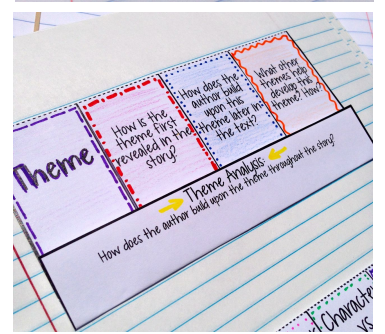 Theme
How is the
theme first
revealed in the
story?
How does the
author build
upon this
theme later in
the text?
What other
themes help
develop this
theme? How?
Theme Analysis:
How does the author build upon the theme throughout the story?
Character
vs